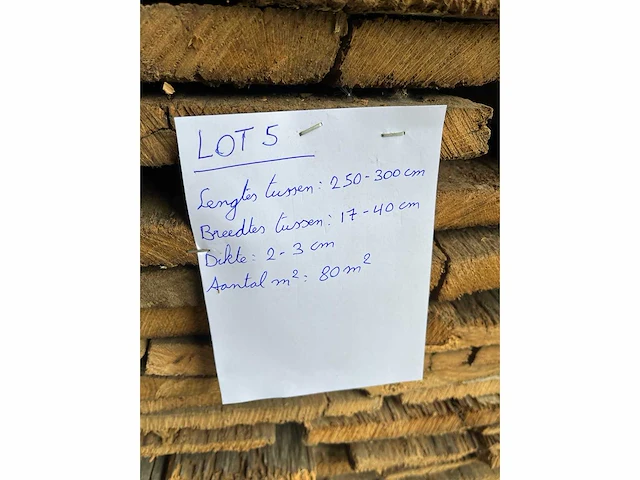 LOT 5
Lengtes tussen: 250-300 cm
Breedtes tussen: 17-40 cm
Dikte: 2-3 cm
Aantal m²: 80 m²